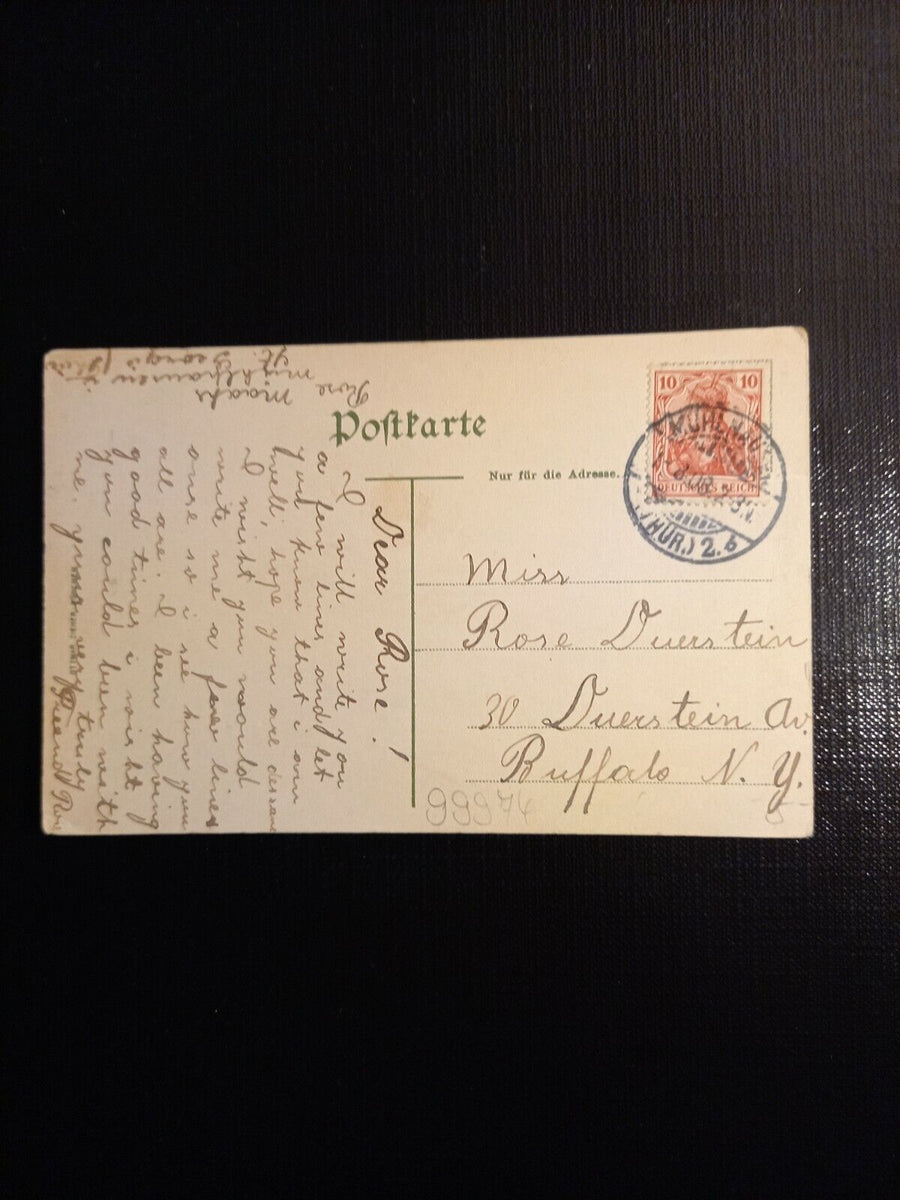 Postkarte
Nur für die Adresse.
10 10
DEUTSCHES REICH
MÜHLHAUSEN
(THÜR.) 2.
Miss
Rose Duerstein
30 Duerstein Av.
Buffalo N. Y.
99974
Dear Rose!
I will write you
a few lines and let
you know that i am
well, hope you are
I wisht you would
write me a few lines
once so i see how you
all are. I been having
good times i wisht
you could been with
me. yours very truly
Friend Rose
Rose Maahs
Mühlhausen i.
St. Georgi